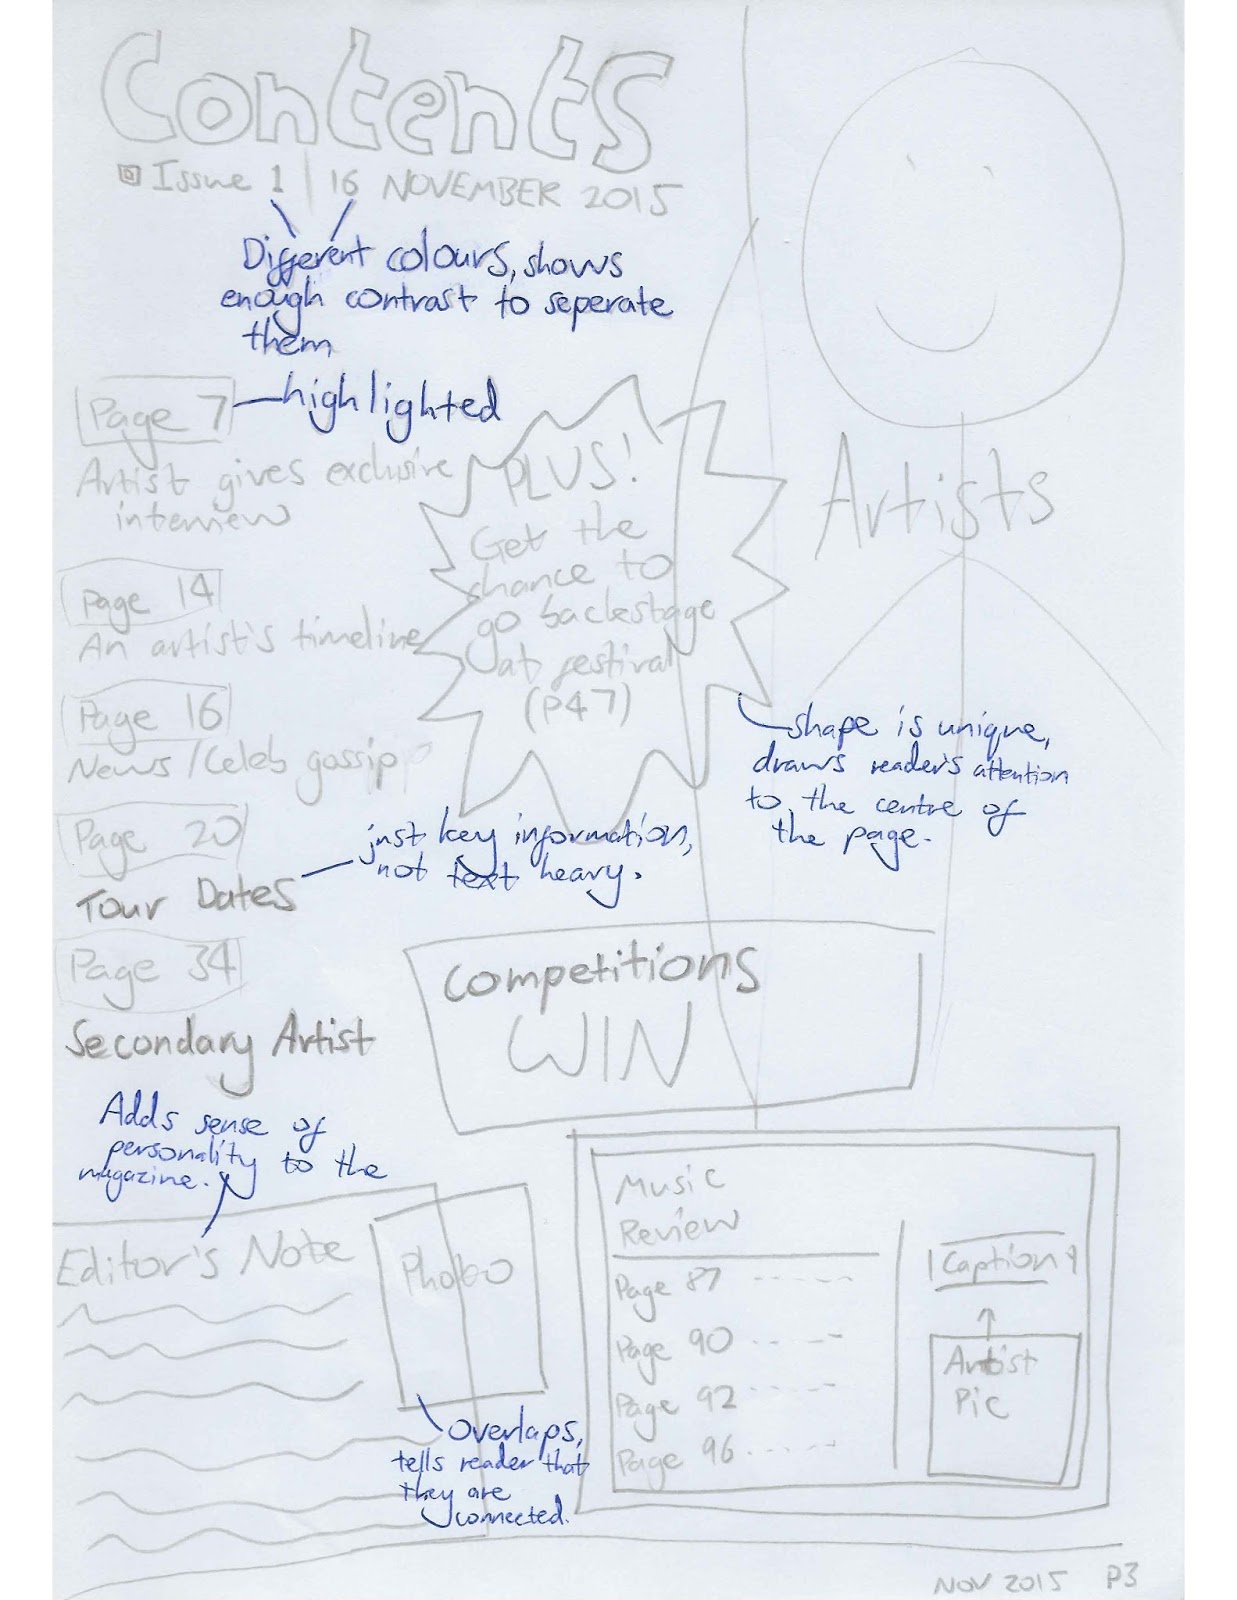 Contents
Issue 1 | 16 NOVEMBER 2015
Different colours, shows
enough contrast to seperate
them
Page 7
highlighted
Artist gives exclusive
interview
Page 14
An artist's timeline
Page 16
News / Celeb gossip
Page 20
Tour Dates
just key information,
not text heavy.
Page 34
Secondary Artist
PLUS!
Get the
chance to
go backstage
at festival
(P47)
Artists
shape is unique,
draws reader's attention
to the centre of
the page.
Competitions
WIN
Adds sense of
personality to the
magazine.
Editor's Note
Photo
Overlaps,
tells reader that
they are
connected.
Music
Review
Page 87
Page 90
Page 92
Page 96
Caption
Artist
Pic
NOV 2015 P3